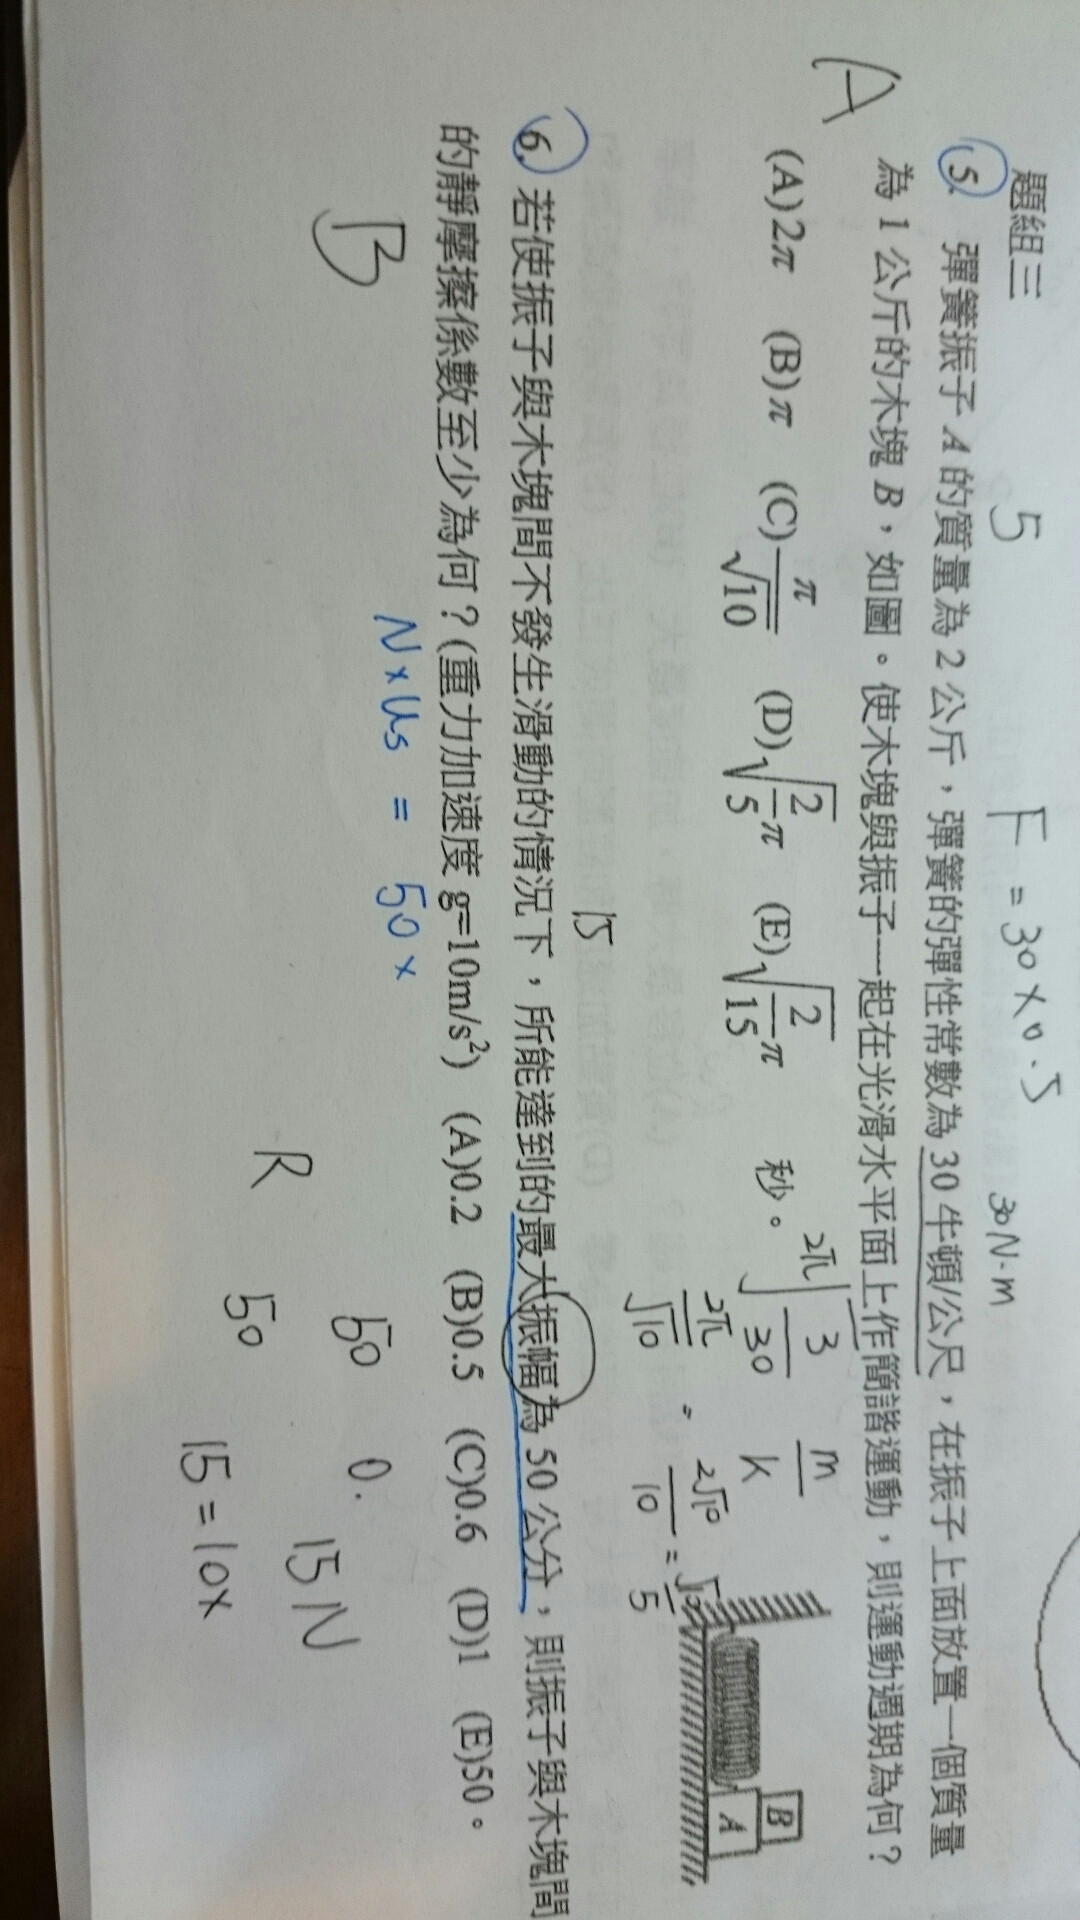 題組三
5
F = 30 × 0.5
30N·m
5. 彈簧振子 A 的質量為 2 公斤，彈簧的彈性常數為 30 牛頓/公尺，在振子上面放置一個質量
為 1 公斤的木塊 B，如圖。使木塊與振子一起在光滑水平面上作簡諧運動，則運動週期為何？
A
(A)2π (B)π (C)π/√10 (D)√(2/5)π (E)√(2/15)π 秒。
2π√(3/30) m/k
2π/√10 = 2√10/10 = √10/5
B
A
15
6. 若使振子與木塊間不發生滑動的情況下，所能達到的最大振幅為 50 公分，則振子與木塊間
的靜摩擦係數至少為何？(重力加速度 g=10m/s²) (A)0.2 (B)0.5 (C)0.6 (D)1 (E)50。
B
N×Us = 50×
50 0.
R
15N
50
15=10x